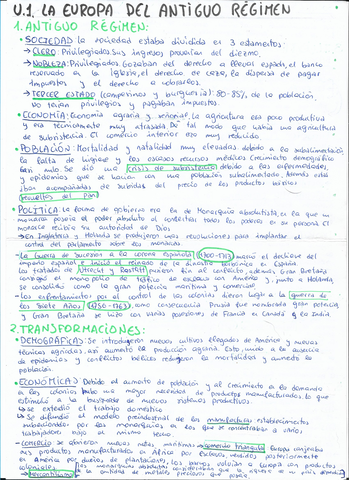 U.1. LA EUROPA DEL ANTIGUO RÉGIMEN
1. ANTIGUO RÉGIMEN:
• SOCIEDAD: La sociedad estaba dividida en 3 estamentos:
→ CLERO: Privilegiados. Sus ingresos provenían del diezmo.
→ NOBLEZA: Privilegiados. Gozaban del derecho a llevar espada, el banco
reservado a la iglesia, el derecho de caza, la dispensa de pagar
impuestos y el derecho a
→ TERCER ESTADO (campesinos y burguesía): 80-85% de la población,
no tenían privilegios y pagaban impuestos.
• ECONOMÍA: Economía agraria y señorial, la agricultura era poco productiva
y era técnicamente muy atrasada. De tal modo que había una agricultura
de subsistencia. El comercio interior era muy reducido.
• POBLACIÓN: Mortalidad y natalidad muy elevadas debido a la subalimentación,
la falta de higiene y los escasos recursos médicos. Crecimiento demográfico
casi nulo. Se dio una crisis de subsistencia debido a las enfermedades
y epidemias que se hacían con una población subalimentada. Además estas
iban acompañadas de subidas del precio de los productos básicos
revueltas del Pan
• POLÍTICA: La forma de gobierno era la de Monarquía absolutista, en la que un
monarca poseía el poder absoluto al contestar todos los poderes en su persona. El
monarca recibía su autoridad de Dios.
→ En Inglaterra y Holanda se produjeron unas revoluciones para implantar el
control del parlamento sobre los monarcas.
- La Guerra de Sucesión a la corona española (1700-1713) marcó el declive del
imperio español e inició el reinado de la dinastía borbónica en España.
Los tratados de Utrech y Rastatt ponen fin al conflicto, además Gran Bretaña
consigue el monopolio de tráfico de esclavos en América y, junto a Holanda
se consolidó como la gran potencia marítima y comercial.
- Los enfrentamientos por el control de las colonias dieron lugar a la guerra de
los Siete Años (1756-1763) como consecuencia Prusia fue nombrada gran potencia
y Gran Bretaña se hizo con varias posesiones de Francia en Canadá y la India
2. TRANSFORMACIONES:
• DEMOGRÁFICAS: Se introdujeron nuevos cultivos llegados de América y nuevas
técnicas agrarias, así aumentó la producción agraria. Esto unido a la ausencia
de epidemias y conflictos bélicos redujeron la mortalidad y aumentó la
población.
• ECONÓMICAS: Debido al aumento de población y al crecimiento de la demanda
en las colonias hubo una mayor necesidad de productos manufacturados, lo que
estimuló a la búsqueda de nuevos sistemas productivos:
↳ se extendió el trabajo doméstico
↳ Se difundió el modelo preindustrial de las manufacturas: establecimientos
subvencionados por las monarquías en los que se concentraban a varios
trabajadores bajo un mismo techo.
- COMERCIO: se abrieron nuevas rutas marítimas → comercio triangular: Europa canjeaba
sus productos manufacturados en África por esclavos, vendidos, posteriormente
en América por dueños de plantaciones, los barcos volvían a Europa con productos
coloniales.